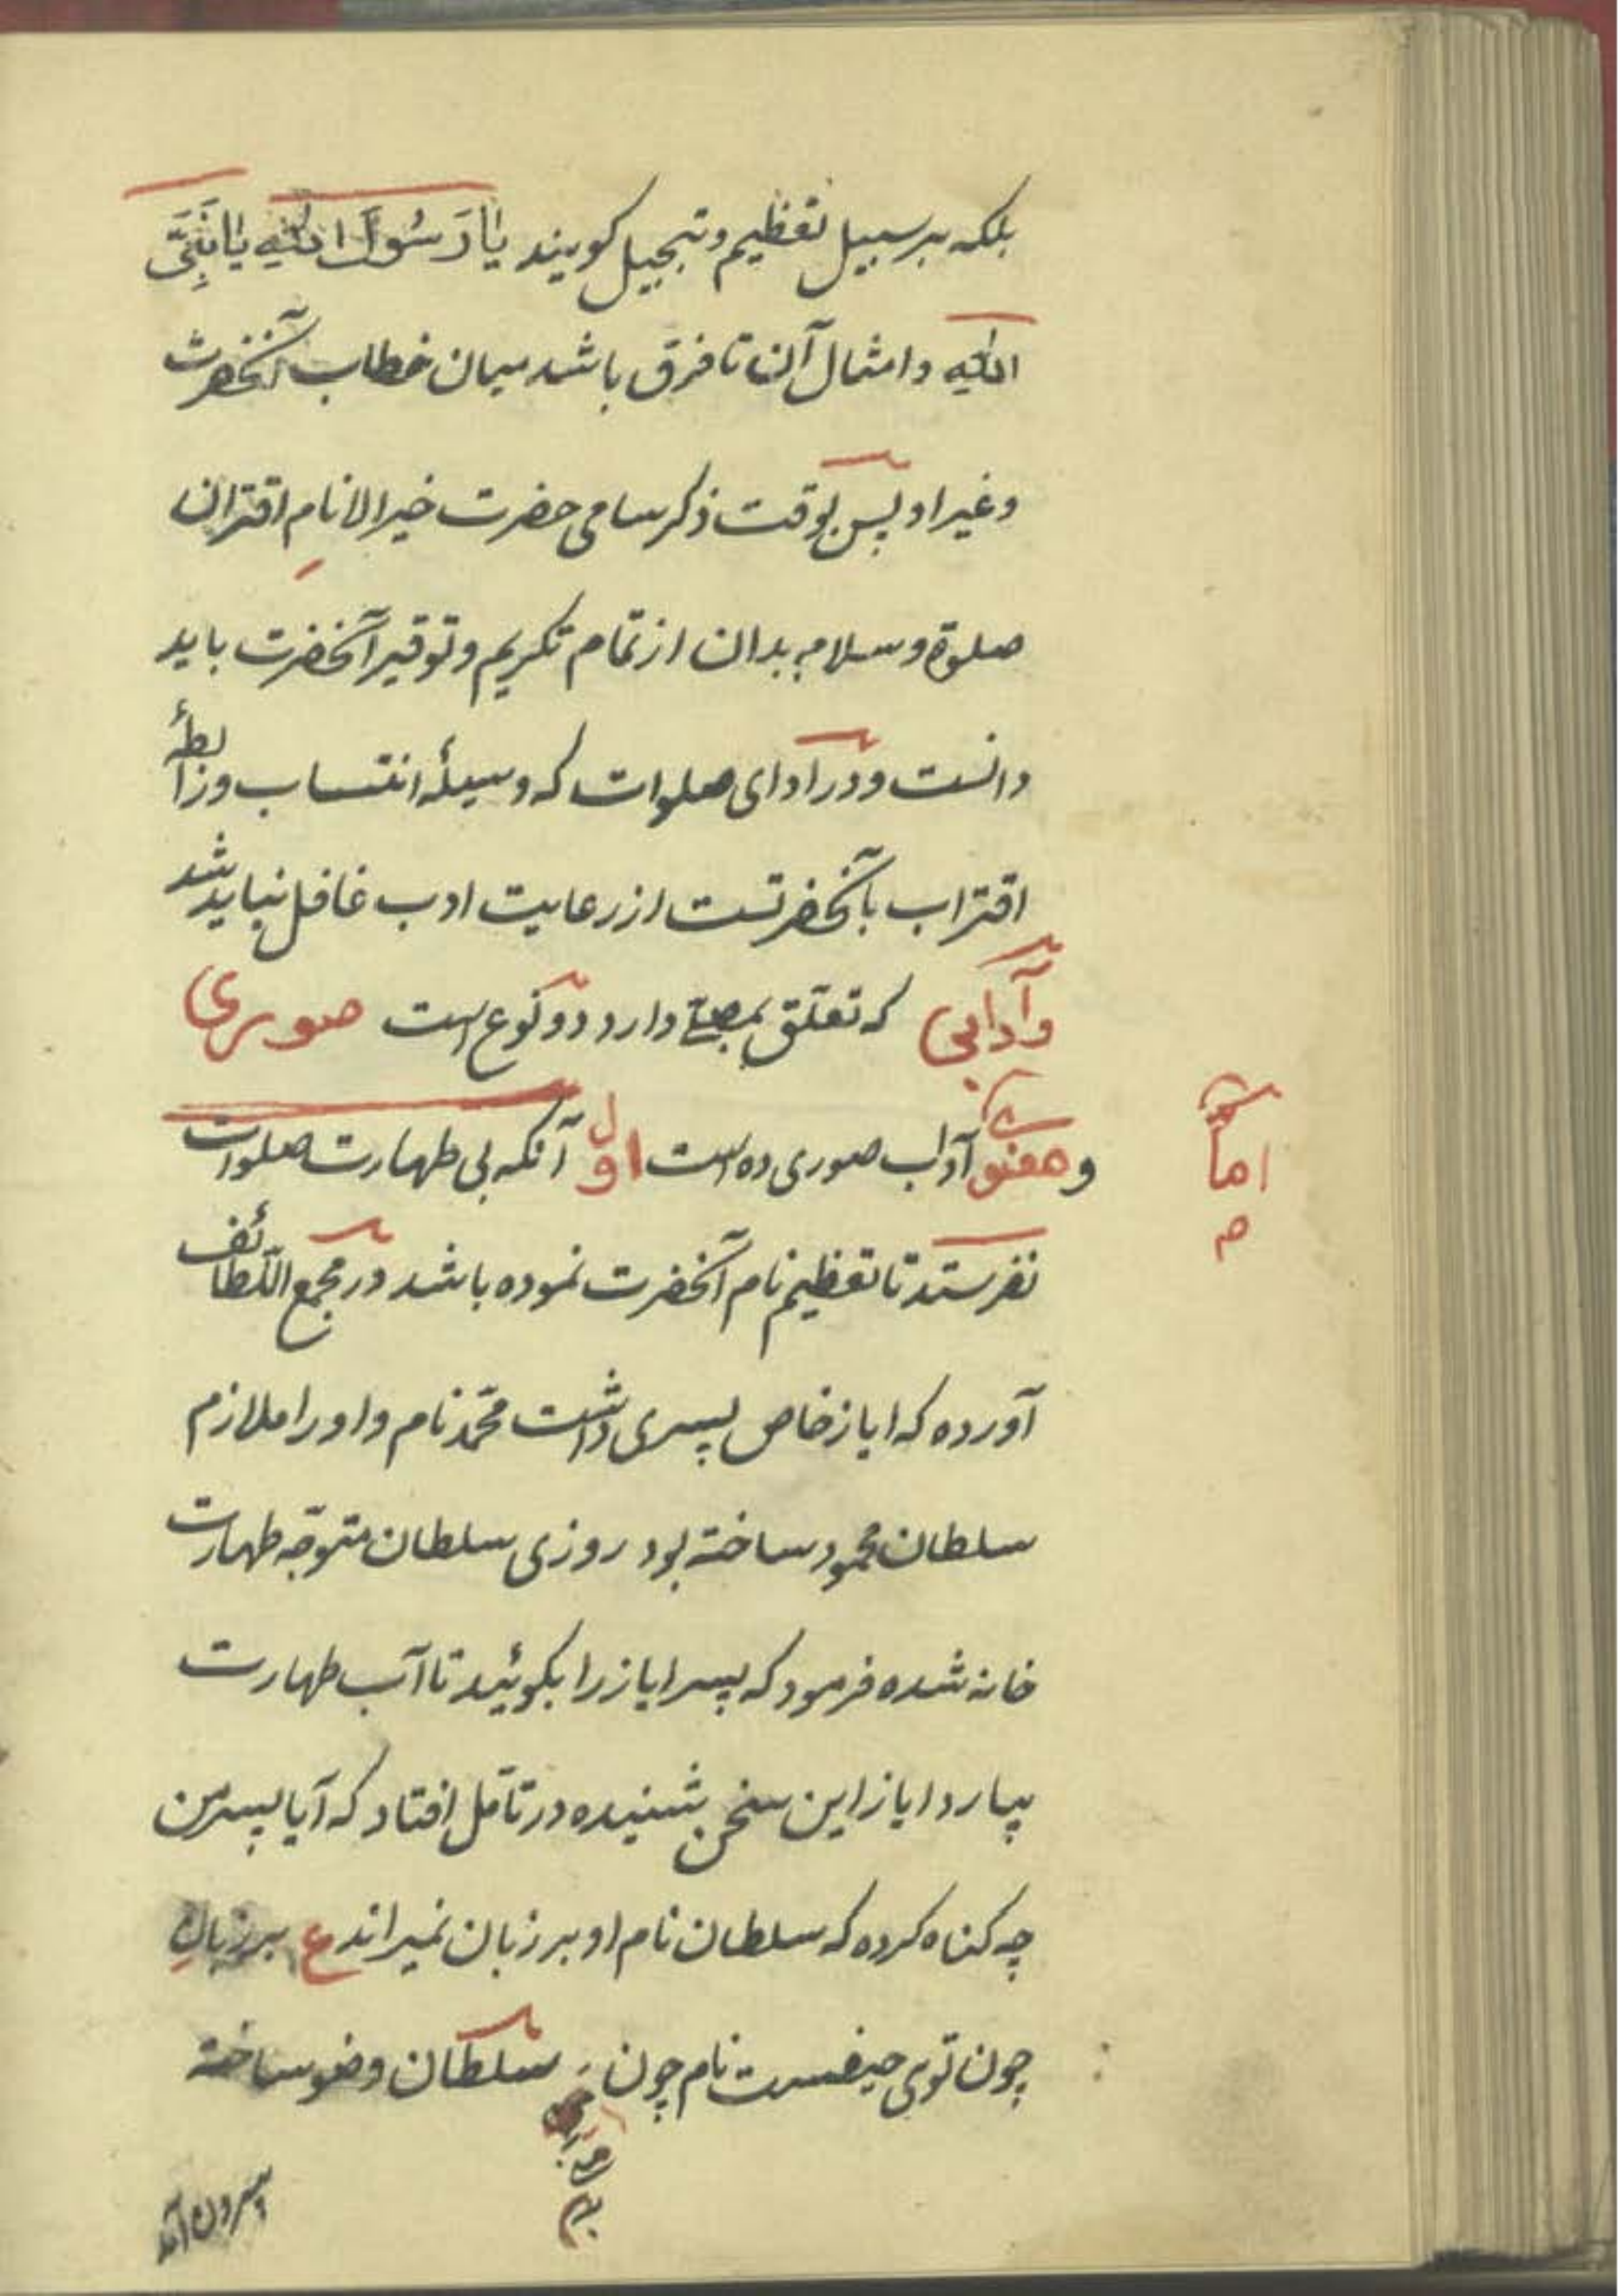 بلکه بر سبیل تعظیم و تبجیل کویند یا رَسُولَ اللهِ یا نَبِیَّ
اللهِ و امثال آن تا فرق باشد میان خطاب آنحضرت
و غیر او پس بوقت ذکر سامی حضرت خیر الانامِ اقتران
صلوة و سلام بدان از تمام تکریم و توقیر آنحضرت باید
دانست و در ادای صلوات که وسیلهٔ انتساب و رابطهٔ
اقتراب بآنحضرتست از رعایت ادب غافل نباید شد
و آدابی که تعلق بمصلی دارد دو نوع است صوری
و معنوی آداب صوری ده است اول آنکه بی طهارت صلوات
امّا
م
نفرستد تا تعظیم نام آنحضرت نموده باشد در مجمع اللّطائف
آورده که ایاز خاص پسری داشت محمّد نام و او را ملازم
سلطان محمود ساخته بود روزی سلطان متوجّه طهارت
خانه شده فرمود که پسر ایاز را بکوئید تا آب طهارت
بیارد ایاز این سخن بشنیده در تأمّل افتاد که آیا پسر من
چه کناه کرده که سلطان نام او بر زبان نمیراند ع بر زبانِ
چون توی حیفست نام چون سلطان وضو ساخته
بیرون آمد